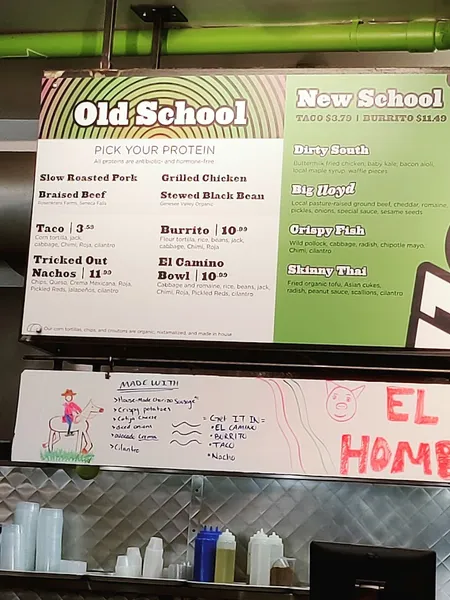 Old School
PICK YOUR PROTEIN
All proteins are antibiotic- and hormone-free
Slow Roasted Pork
Grilled Chicken
Braised Beef
Stewed Black Bean
Taco | 3.59
Corn tortilla, jack,
cabbage, Chimi, Roja, cilantro
Burrito | 10.99
Flour tortilla, rice, beans, jack,
cabbage, Chimi, Roja
Tricked Out
Nachos | 11.99
Chips, Queso, Crema Mexicana, Roja,
Pickled Reds, jalapeños, cilantro
El Camino
Bowl | 10.99
Cabbage and romaine, rice, beans, jack,
Chimi, Roja, Pickled Reds, cilantro
Our corn tortillas, chips, and croutons are organic, nixtamalized, and made in house
New School
TACO $3.79 | BURRITO $11.49
Dirty South
Buttermilk fried chicken, baby kale, bacon aioli,
local maple syrup, waffle pieces
Big lloyd
Local pasture-raised ground beef, cheddar, romaine,
pickles, onions, special sauce, sesame seeds
Crispy Fish
Wild pollock, cabbage, radish, chipotle mayo,
Chimi, cilantro
Skinny Thai
Fried organic tofu, Asian cukes,
radish, peanut sauce, scallions, cilantro
MADE WITH
>House-Made Chorizo Sausage
>Crispy potatoes
>Cotija Cheese
>diced onions
>avocado Crema
>Cilantro
= Get IT IN =
•EL CAMINO
•BURRITO
•TACO
•Nacho
EL
HOMB